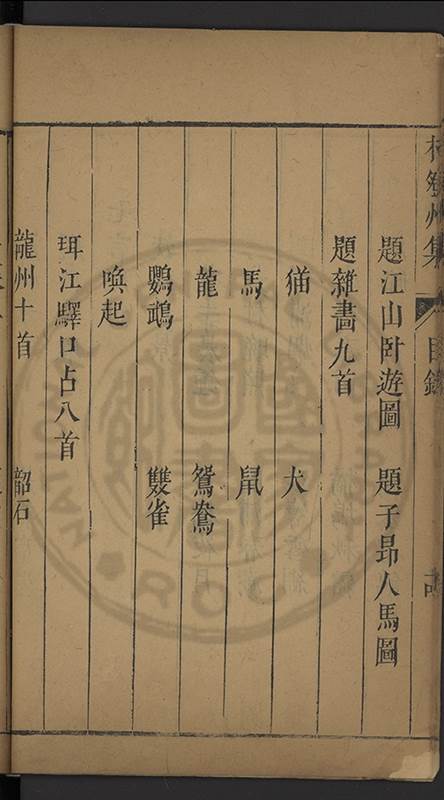 集 目錄
題江山卧遊圖 題子昂人馬圖
題雜畫九首
猫 犬
馬 鼠
龍 鴛鴦
鸚鵡 雙雀
喚起
珥江驛口占八首
龍州十首 韶石